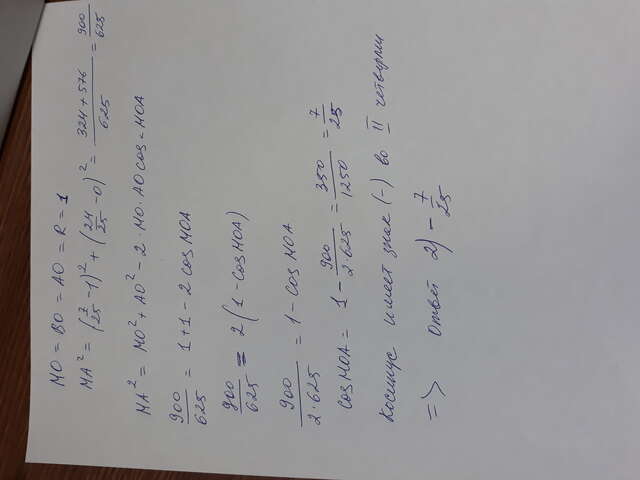 MO = BO = AO = R = 1
MA² = (7/25 - 1)² + (24/25 - 0)² = (324 + 576)/625 = 900/625
MA² = MO² + AO² - 2 · MO · AO cos ∠ MOA
900/625 = 1 + 1 - 2 cos MOA
900/625 = 2 (1 - cos MOA)
900/(2·625) = 1 - cos MOA
cos MOA = 1 - 900/(2·625) = 350/1250 = 7/25
Косинус имеет знак (-) во II четверти
=> Ответ 2) - 7/25